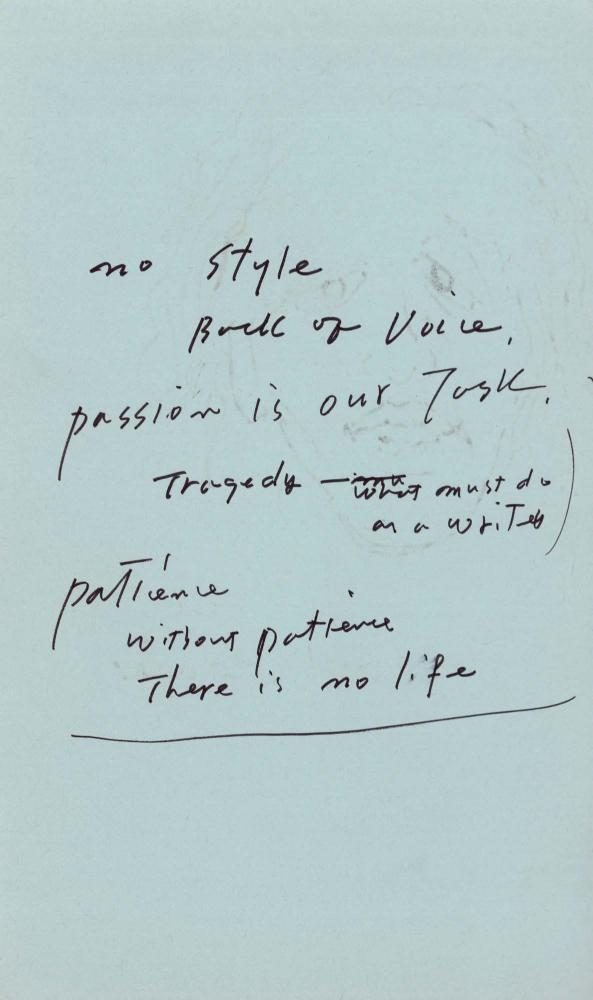 no style
Back of Voice,
passion is our Task.
Tragedy — what must do
as a writer
patience
without patience
There is no life